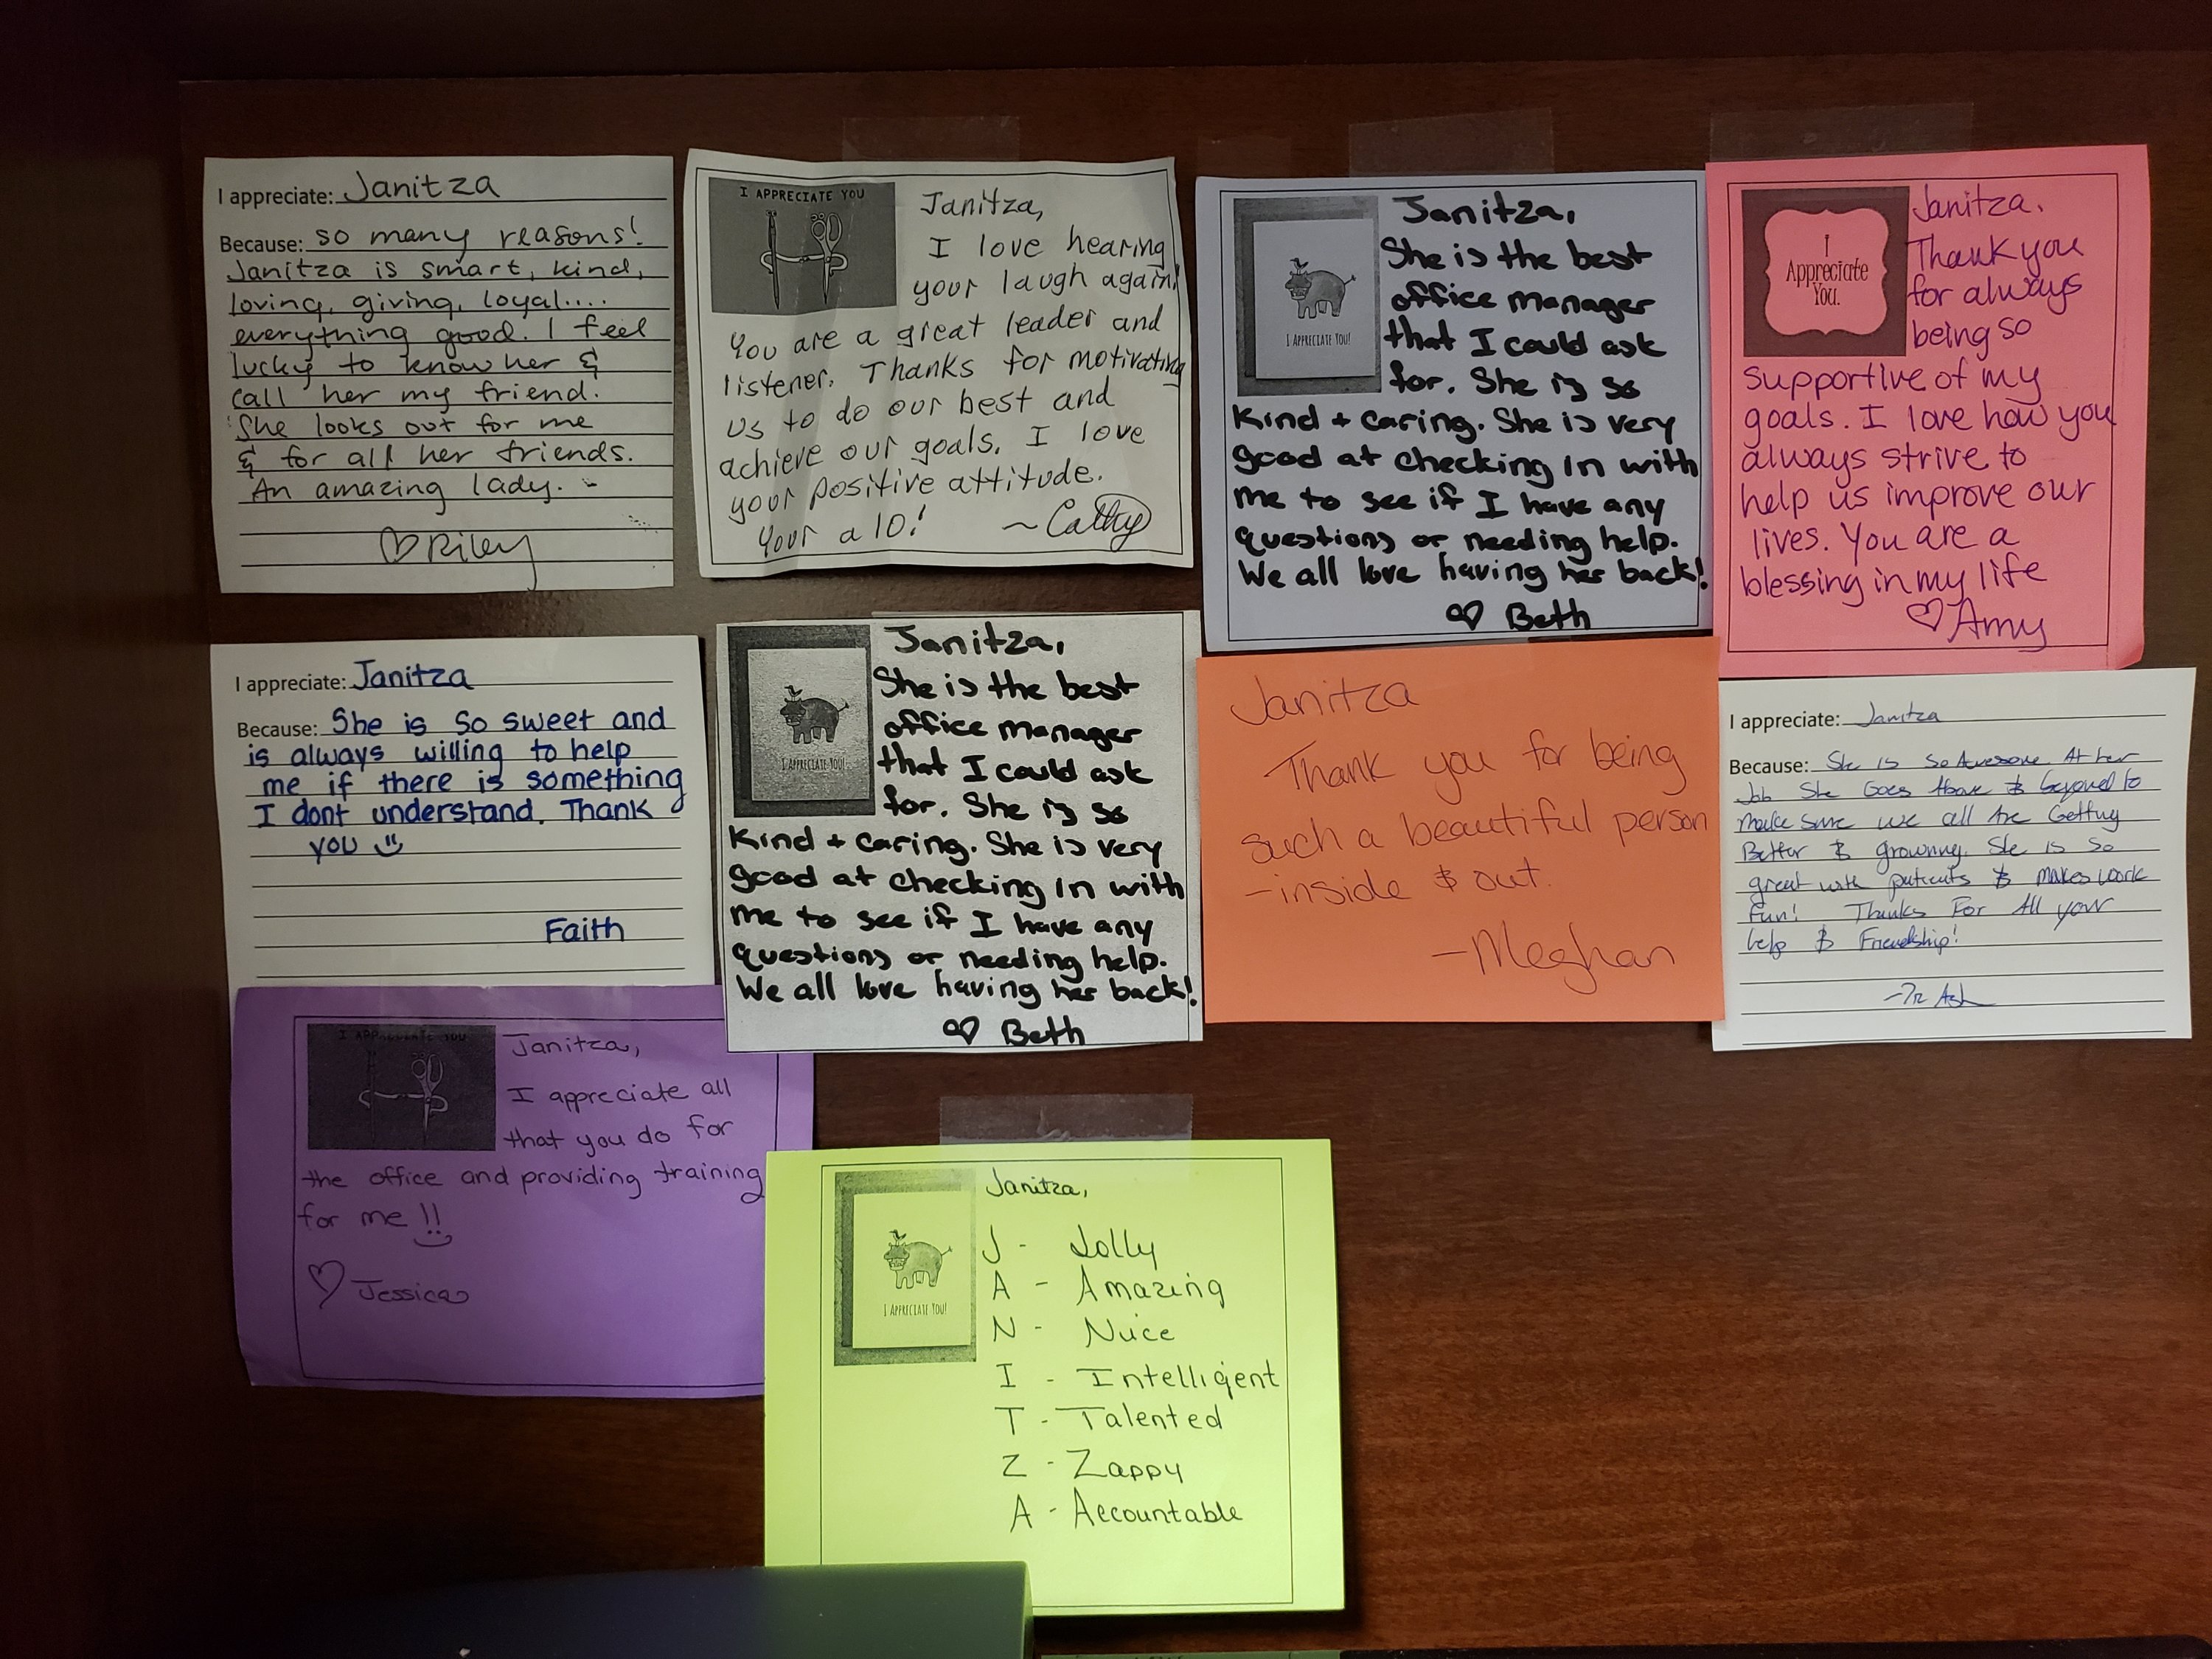 I appreciate: Janitza
Because: so many reasons!
Janitza is smart, kind,
loving, giving, loyal....
everything good. I feel
lucky to know her &
call her my friend.
She looks out for me
& for all her friends.
An amazing lady. -
♡ Riley
I APPRECIATE YOU
Janitza,
I love hearing
your laugh again!
You are a great leader and
listener. Thanks for motivating
us to do our best and
achieve our goals. I love
your positive attitude.
Your a 10!
~ Cathy
I APPRECIATE YOU!
Janitza,
She is the best
office manager
that I could ask
for. She is so
Kind + caring. She is very
good at checking in with
me to see if I have any
questions or needing help.
We all love having her back!
♡ Beth
I
Appreciate
You.
Janitza.
Thank you
for always
being so
supportive of my
goals. I love how you
always strive to
help us improve our
lives. You are a
blessing in my life
♡ Amy
I appreciate: Janitza
Because: She is so sweet and
is always willing to help
me if there is something
I dont understand. Thank
you ☺
Faith
I APPRECIATE YOU!
Janitza,
She is the best
office manager
that I could ask
for. She is so
Kind + caring. She is very
good at checking in with
me to see if I have any
questions or needing help.
We all love having her back!
♡ Beth
Janitza
Thank you for being
such a beautiful person
- inside & out.
- Meghan
I appreciate: Janitza
Because: She is So Awesome At her
Job She Goes Above & beyond to
make sure we all Are Getting
Better & growning. She is so
great with patients & makes work
Fun! Thanks For All your
help & Friendship!
I APPRECIATE YOU
Janitza,
I appreciate all
that you do for
the office and providing training
for me !!
♡ Jessica
I APPRECIATE YOU!
Janitza,
J - Jolly
A - Amazing
N - Nice
I - Intelligent
T - Talented
Z - Zappy
A - Accountable